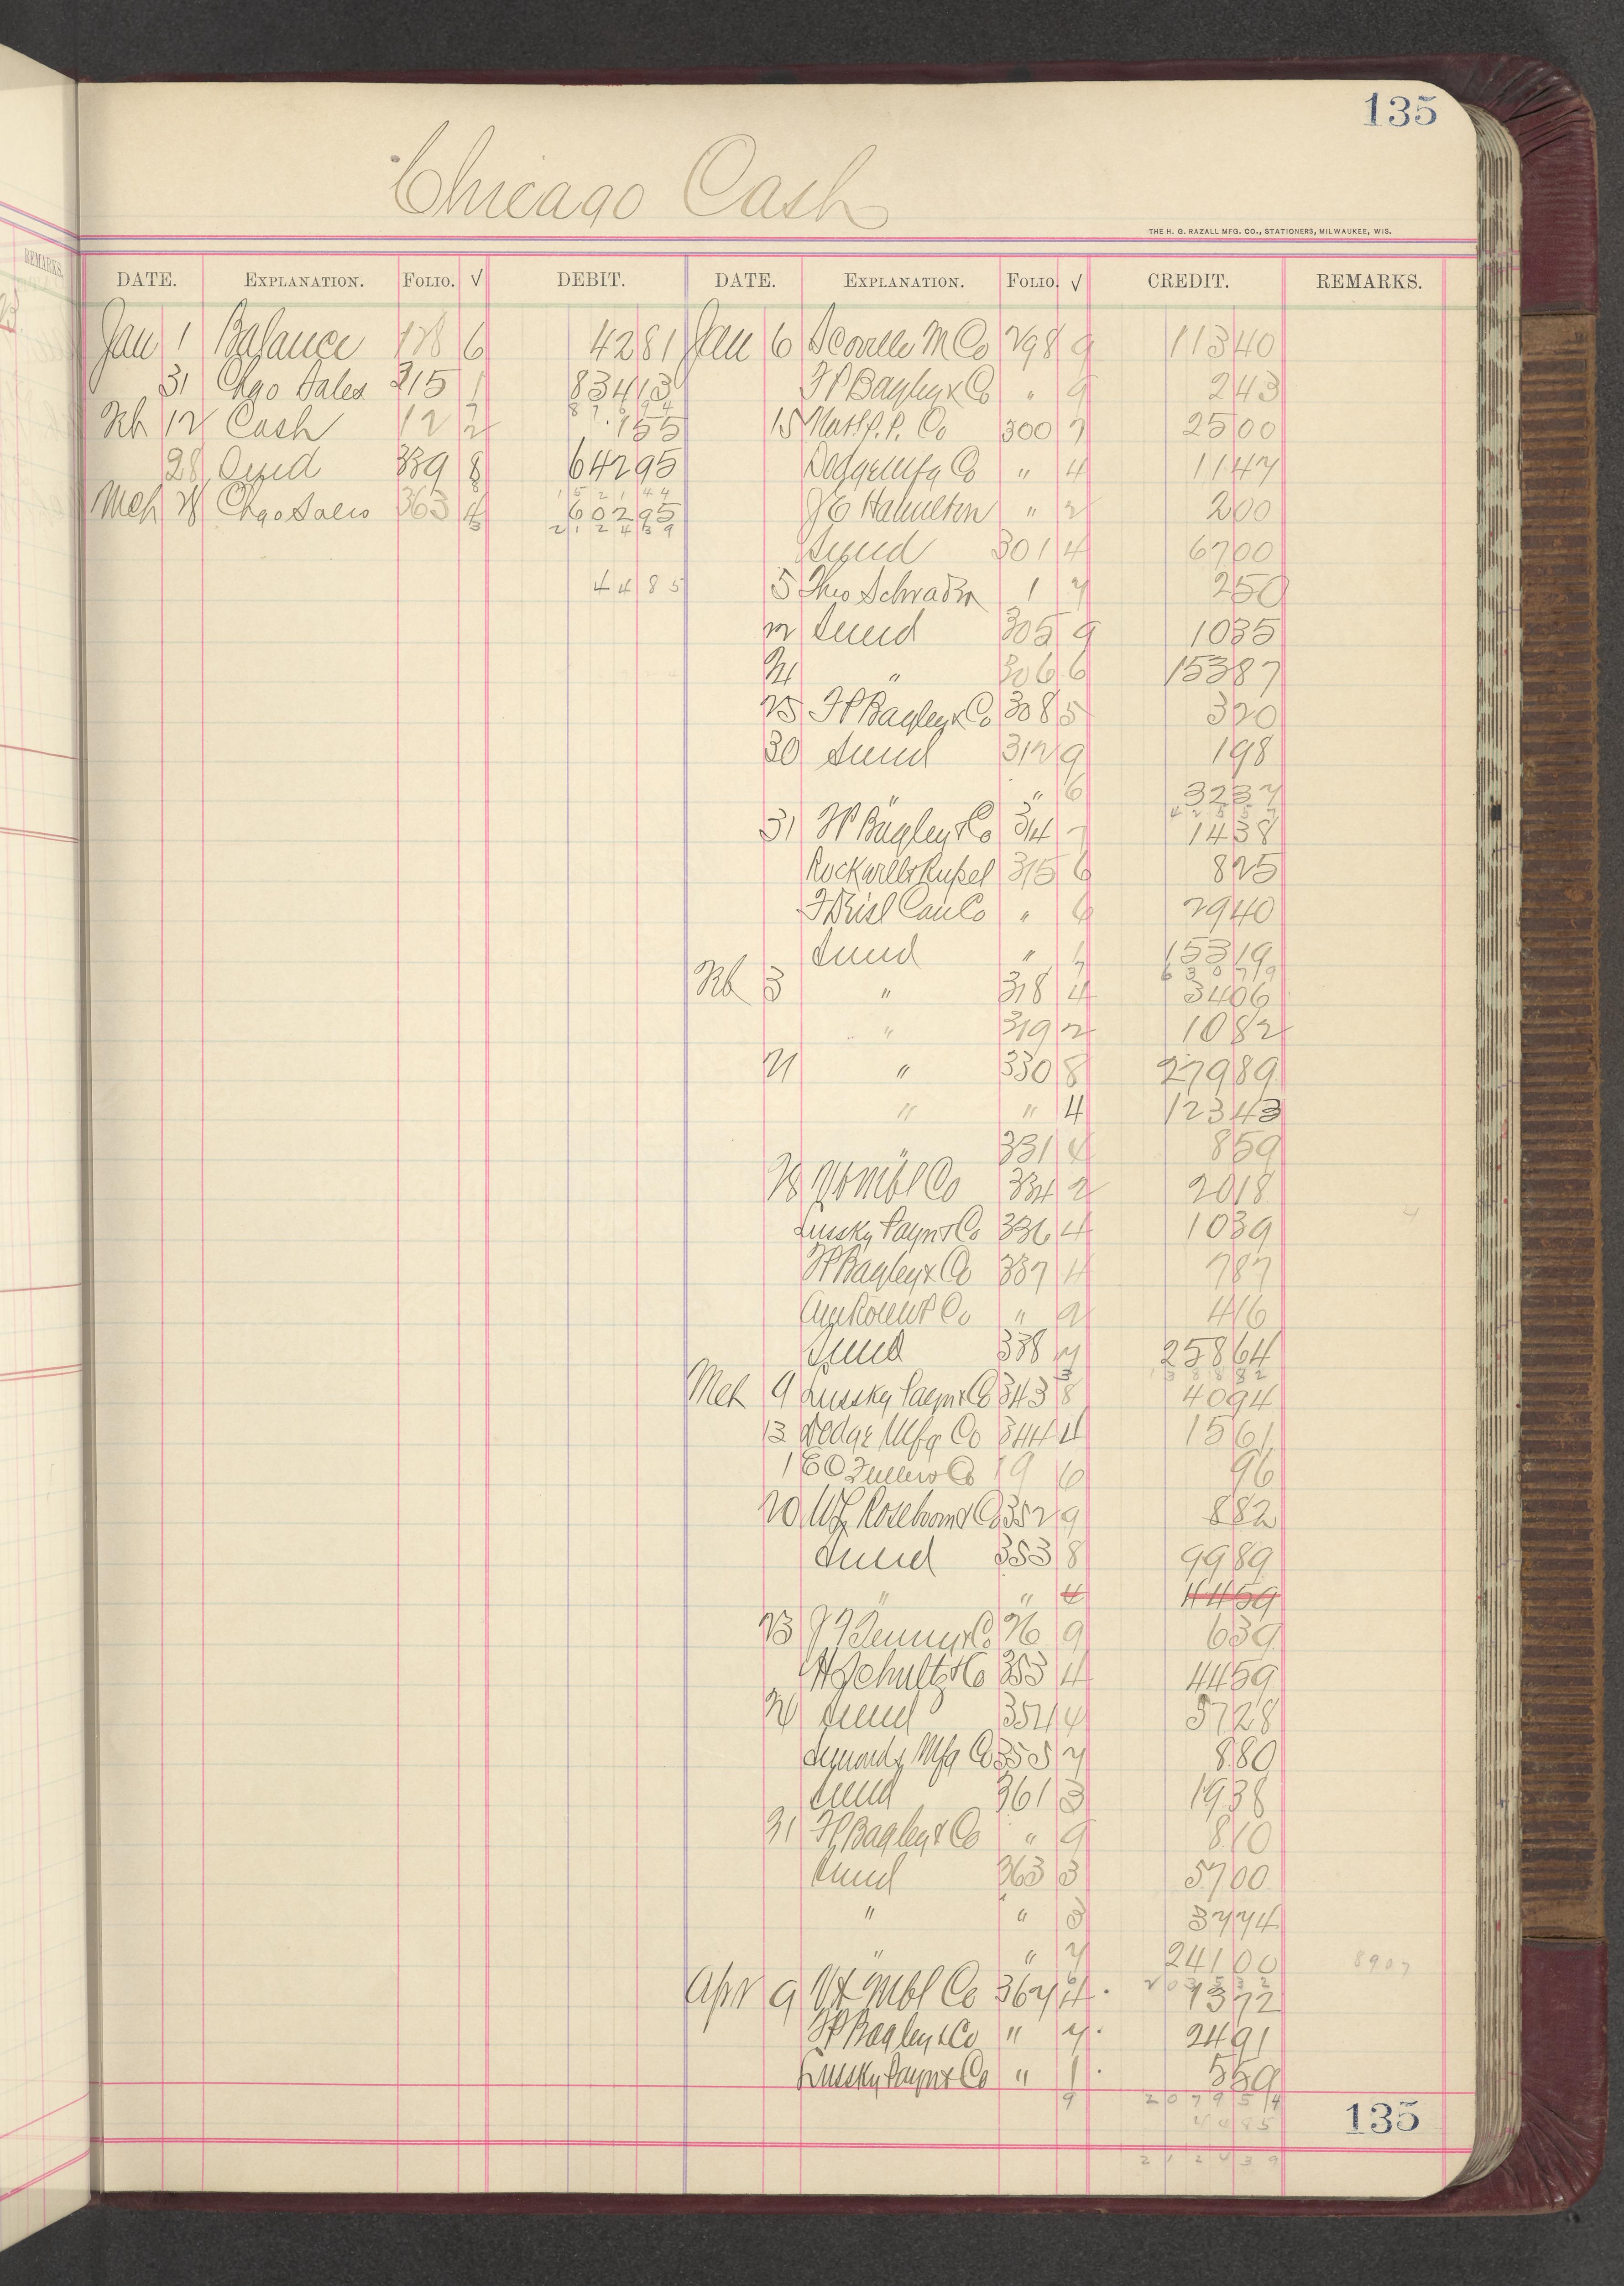 135
Chicago Cash
THE H. G. RAZALL MFG. CO., STATIONERS, MILWAUKEE, WIS.
REMARKS.
DATE. EXPLANATION. FOLIO. √ DEBIT. DATE. EXPLANATION. FOLIO. √ CREDIT. REMARKS.
Jan 1 Balance 128 6 4281 Jan 6 Scoville M Co 298 9 11340
31 Chgo Sales 315 1 83413 FP Bagley & Co " 9 243
87694
Feb 12 Cash 12 2 155 15 Co 300 7 2500
28 Sund 339 8 64295 Dodge Mfg Co " 4 1147
152144
Mch 28 Chgo Sales 363 4 60295 Hamilton " 2 200
212439
Sund 301 4 6700
4485 5 Theo Schrader 1 7 250
12 Sund 305 9 1035
" 306 6 15387
25 FP Bagley & Co 308 5 320
30 Sund 312 9 198
" " 6 3237
42557
31 FP Bagley & Co 314 7 1438
Rockwell & Rupel 315 6 825
Co " 6 2940
Sund " 1 15319
63079
Feb 3 " 318 4 3406
" 319 2 1082
21 " 330 8 27989
" " 4 12343
331 4 859
28 Vt Mbl Co 334 2 2018
Lussky Payn & Co 336 4 1039
FP Bagley & Co 337 4 787
Co " 2 416
Sund 338 7 25864
138882
Mch 9 Lussky Payn & Co 343 8 4094
13 Dodge Mfg Co 344 4 1561
Fuller & Co 19 6 96
20 Co 352 9 882
Sund 353 8 9989
" " 4 4459
23 Co 26 9 639
Schultz & Co 353 4 4459
Sund 354 4 5728
Mfg Co 355 7 880
Sund 361 3 1938
31 FP Bagley & Co " 9 810
Sund 363 3 5700
" " 3 3774
" " 7 24100 8907
203532
Apr 9 Vt Mbl Co 367 4 1372
FP Bagley & Co " 7 2491
Lussky Payn & Co " 1 559
9 207954
4485
135
212439